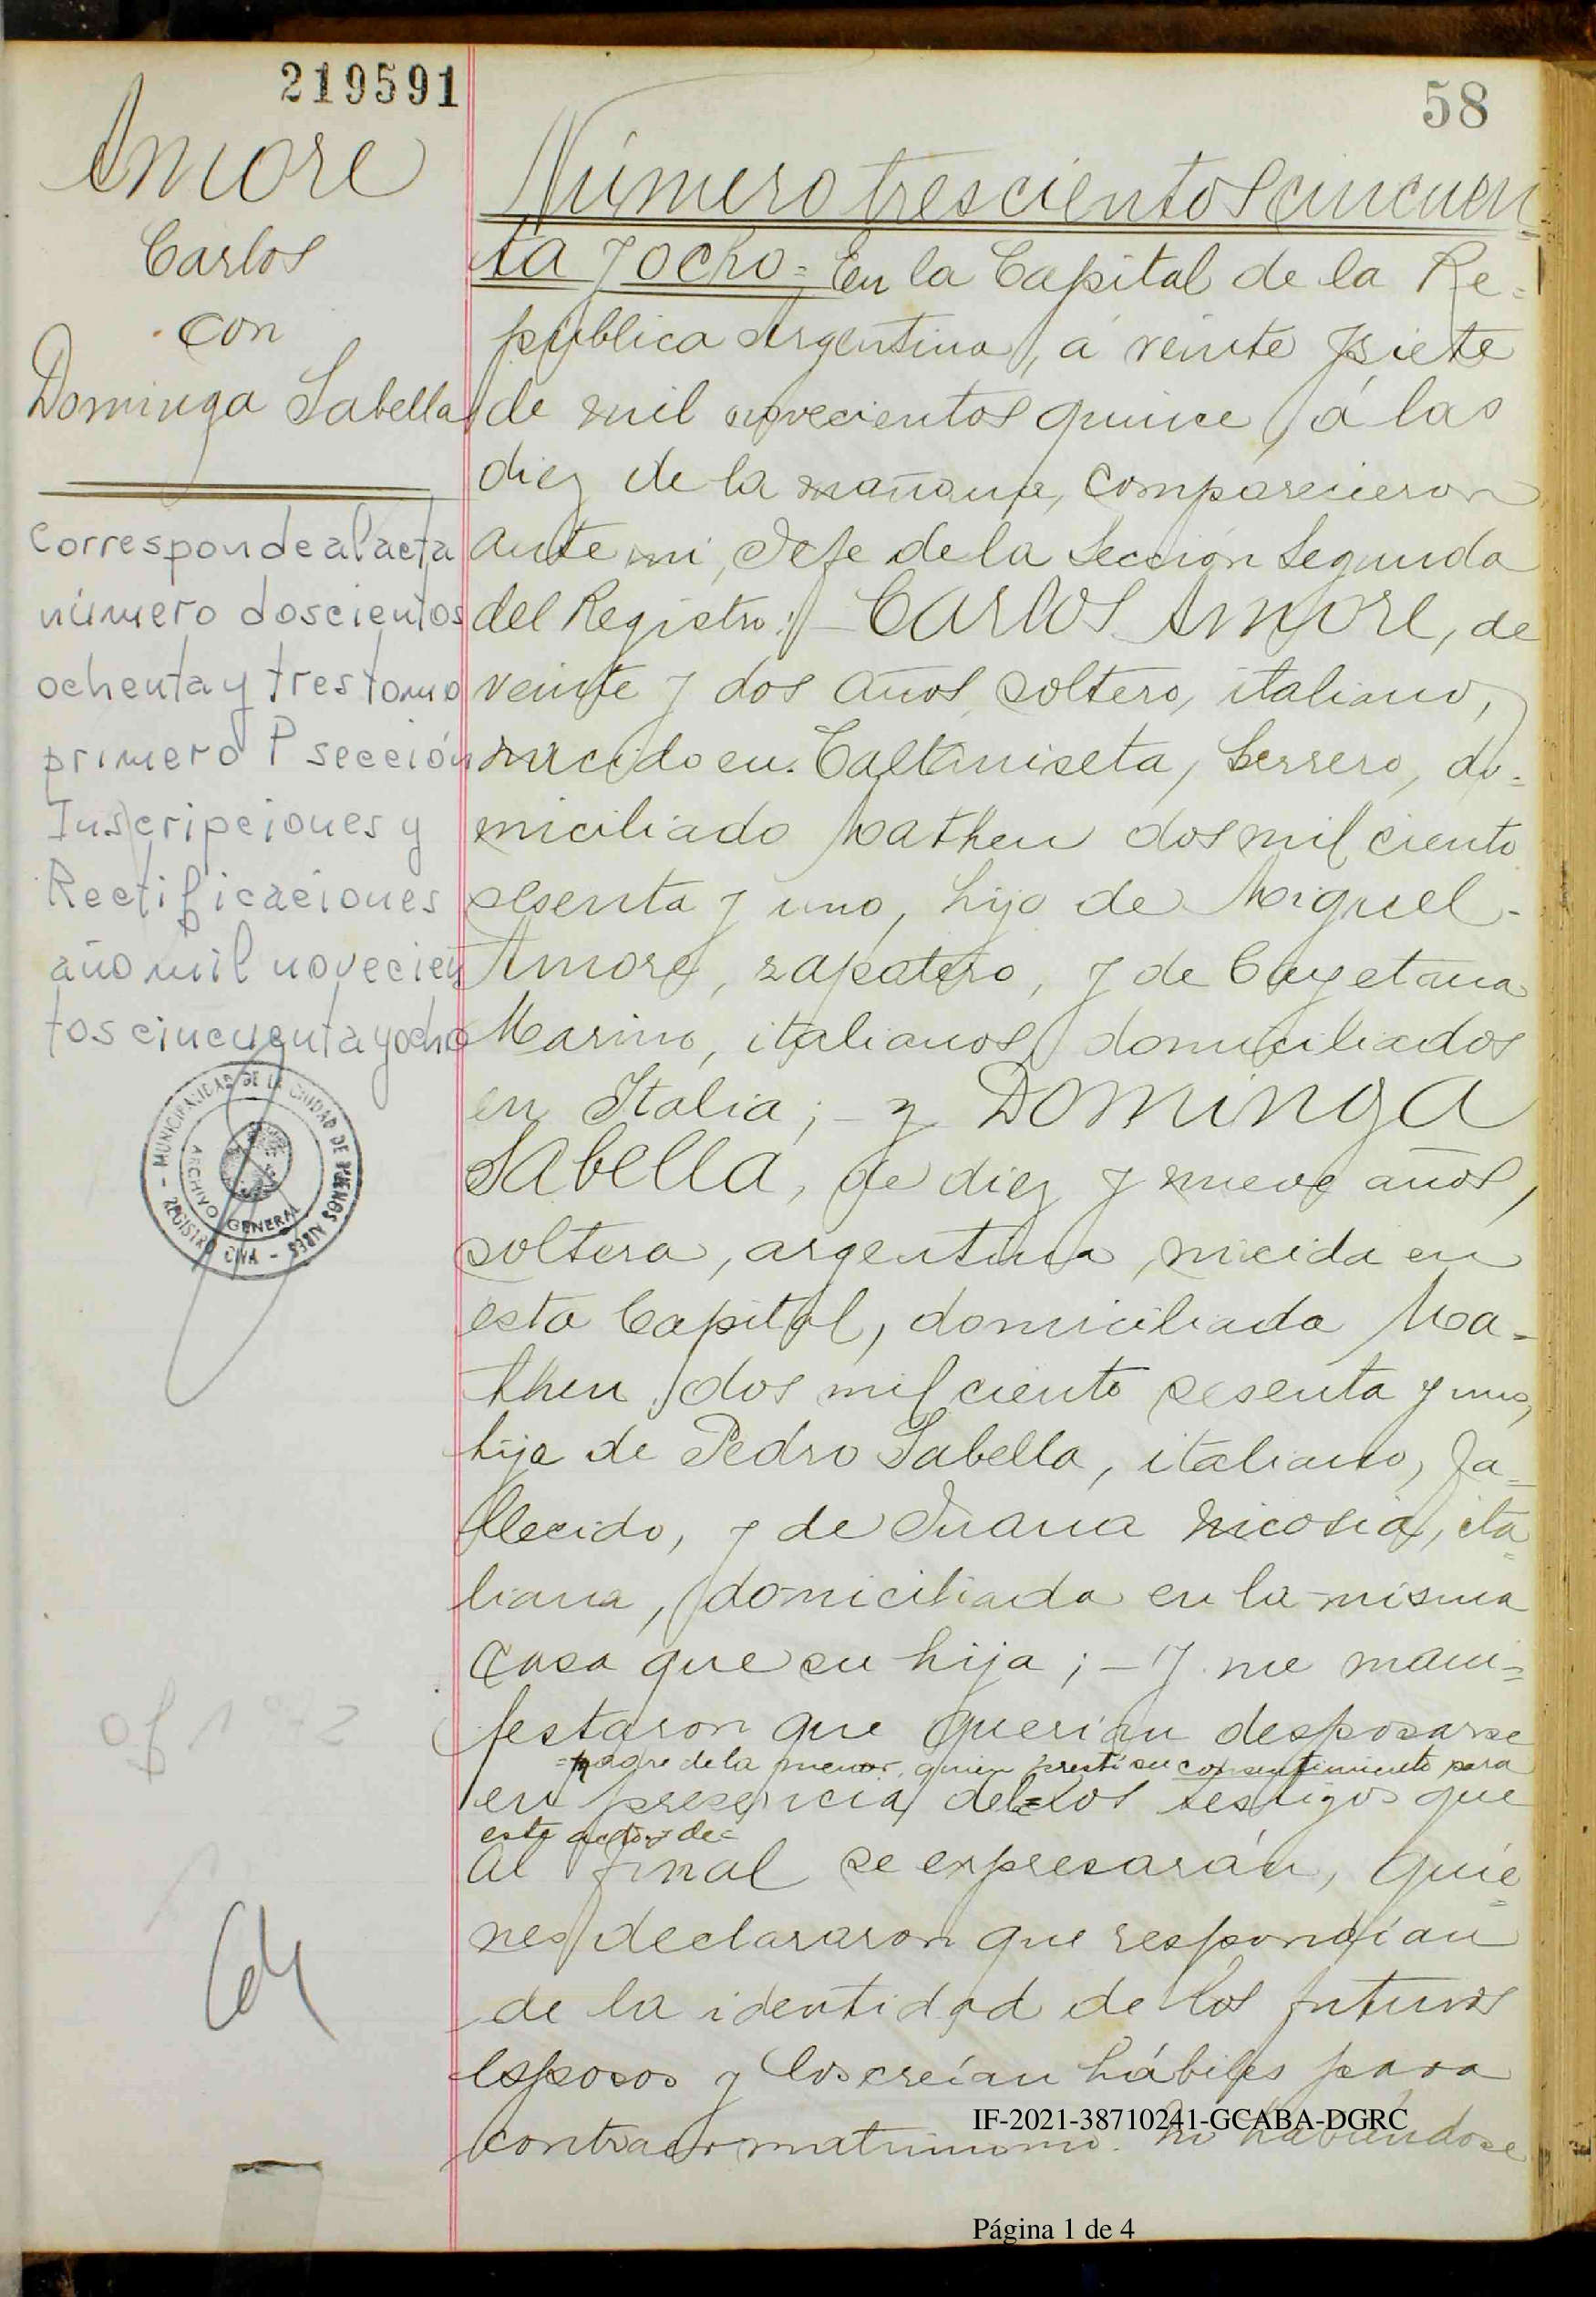 219591
58
Amore
Carlos
con
Dominga Sabella
Corresponde al acta
número doscientos
ochenta y tres tomo
primero P sección
Inscripciones y
Rectificaciones
año mil novecien
tos cincuenta y ocho
- MUNICIPALIDAD DE LA CIUDAD DE BUENOS AIRES - REGISTRO CIVIL
ARCHIVO GENERAL
Número trescientos cincuen=
ta y ocho= En la Capital de la Re=
pública Argentina, á veinte y siete
de mil novecientos quince, á las
diez de la mañana, comparecieron
ante mi, Jefe de la Sección Segunda
del Registro:- Carlos Amore, de
veinte y dos años, soltero, italiano,
nacido en Caltaniseta, herrero, do=
miciliado Matheu dos mil ciento
sesenta y uno, hijo de Miguel-
Amore, zapatero, y de Cayetana
Marino, italianos, domiciliados
en Italia;- y Dominga
Sabella, de diez y nueve años,
soltera, argentina, nacida en
esta Capital, domiciliada Ma-
theu dos mil ciento sesenta y uno,
hija de Pedro Sabella, italiano, fa=
llecido, y de Juana Nicosia, ita=
liana, domiciliada en la misma
casa que su hija;- Y me mani=
festaron que querían desposarse
=madre de la menor, quien prestó su consentimiento para
en presencia de los testigos que
este acto y de=
al final se expresarán, quie=
nes declararon que respondían
de la identidad de los futuros
esposos y los creían hábiles para
contraer matrimonio. No habiéndose
IF-2021-38710241-GCABA-DGRC
Página 1 de 4